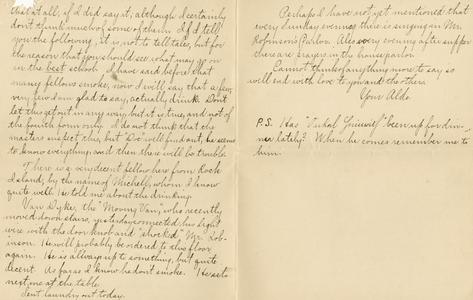 this at all, if I did say it, although I certainly
don't think much of some of them. If I tell
you the following, it is not to tell tales, but for
the reason that you should see what may go on
in the best school. I have said before that
many fellows smoke, now I will say that a few,
very few I am glad to say, actually drink. Don't
let this get out in any way, but it is true, and not of
the fourth form only. I do not think that the
masters suspect this, but "Doc" will find out, he seems
to know everything, and then there will be trouble.
There is a very decent fellow here from Rock
Island, by the name of Michell, whom I know
quite well. He told me about the drinking.
Van Dyke, the "Moving Van", who recently
moved down stairs, yesterday connected his light
wire with the door knob and "shocked" Mr. Rob-
inson. He will probably be ordered to this floor
again. He is always up to something, but quite
decent. As far as I know he don't smoke. He sits
next me at the table.
Sent laundry out today.
Perhaps I have not yet mentioned that
every Sunday evening there is singing in Mr.
Robinson's Parlor. Also every evening after supper
there are prayers in the house parlor.
Cannot think of anything more to say so
will end with love to you and the others
Your Aldo.
P.S. Has "Tubal" been up for din-
ner lately? When he comes remember me to
him.